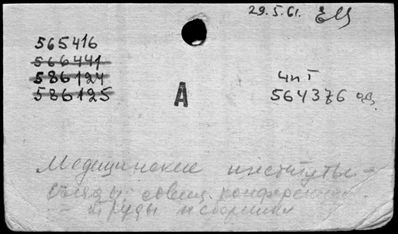 29.5.61.
565416
566441
586124
586125
А
чит
564376
Медицинские институты -
съезды, совещ. конференции.
- труды и сборники